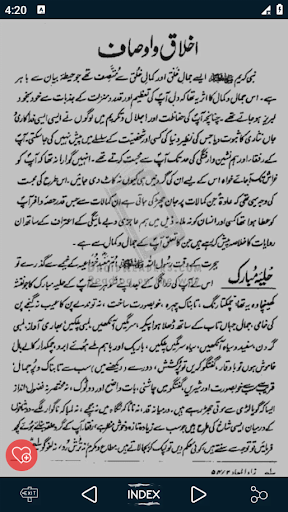 4:20
اخلاق و اوصاف
نبی کریم ﷺ ایسے جمالِ خَلق اور کمالِ خُلق سے متصف تھے جو حیطۂ بیان سے باہر
ہے۔ اس جمال و کمال کا اثر یہ تھا کہ دل آپ کی تعظیم اور قدر و منزلت کے جذبات سے خود بخود
لبریز ہو جاتے تھے۔ چنانچہ آپ کی حفاظت اور اجلال و تکریم میں لوگوں نے ایسی ایسی فداکاری و
جاں نثاری کا ثبوت دیا جس کی نظیر دنیا کی کسی اور شخصیت کے سلسلے میں پیش نہیں کی جا سکتی۔ آپ
کے رفقاء اور ہم نشین وارفتگی کی حد تک آپ سے محبت کرتے تھے۔ انہیں گوارا نہ تھا کہ آپ کو
خراش تک آ جائے خواہ اس کے لیے ان کی گردنیں ہی کیوں نہ کاٹ دی جائیں۔ اس طرح کی محبت
کی وجہ یہی تھی کہ عادۃً جن کمالات پر جان چھڑکی جاتی ہے ان کمالات سے جس قدر حصہ وافر آپ
کو عطا ہوا تھا کسی اور انسان کو نہ ملا۔ ذیل میں ہم عاجزی و بے مائیگی کے اعتراف کے ساتھ ان
روایات کا خلاصہ پیش کر رہے ہیں جن کا تعلق آپ کے جمال و کمال سے ہے۔
حلیۂ مبارک
ہجرت کے وقت رسول اللہ ﷺ اُمِّ معبد خزاعیہ کے خیمے سے گذرے تو
اس نے آپ کی روانگی کے بعد اپنے شوہر سے آپ کے حلیہ مبارک کا جو نقشہ
کھینچا وہ یہ تھا۔ چمکتا رنگ، تابناک چہرہ، خوبصورت ساخت، نہ توندلے پن کا عیب نہ گنجے پن
کی خامی، جمال جہاں تاب کے ساتھ ڈھلا ہوا پیکر، سرمگیں آنکھیں، لمبی پلکیں، بھاری آواز، لمبی
گردن، سفید و سیاہ آنکھیں، سیاہ سرمگیں پلکیں، باریک اور باہم ملے ہوئے ابرو، چمکدار کالے بال
خاموش ہوں تو باوقار، گفتگو کریں تو پُرکشش، دور سے (دیکھنے میں) سب سے تابناک و پُر جمال،
قریب سے خوبصورت اور شیریں، گفتگو میں چاشنی، بات واضح اور دوٹوک، نہ مختصر نہ فضول، انداز
ایسا کہ گویا لڑی سے موتی جھڑ رہے ہیں، درمیانہ قد، نہ ناٹا کہ نگاہ میں نہ جچے، نہ لمبا کہ ناگوار لگے،
EXIT
INDEX